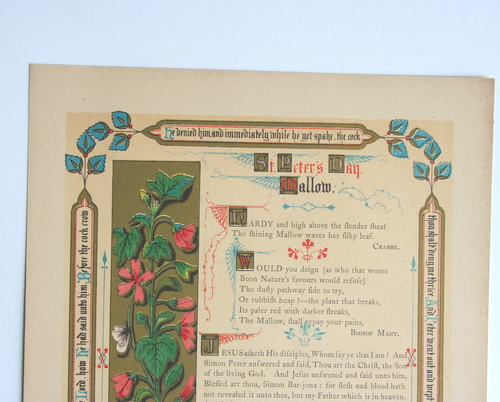 He denied him, and immediately while he yet spake, the cock
St. Peter's Day.
Mallow.
HARDY and high above the slender sheaf
The shining Mallow waves her silky leaf.
CRABBE.
WOULD you deign (as who that wooes
Boon Nature's favours would refuse)
The dusty pathway side to try,
Or rubbish heap?—the plant that breaks,
Its paler red with darker streaks,
The Mallow, shall repay your pains.
BISHOP MANT.
JESUS asketh His disciples, Whom say ye that I am? And
Simon Peter answered and said, Thou art the Christ, the Son
of the living God. And Jesus answered and said unto him,
Blessed art thou, Simon Bar-jona: for flesh and blood hath
not revealed it unto thee, but my Father which is in heaven.
Lord, how He had said unto him, Before the cock crow
thou shalt deny me thrice. And Peter went out and wept